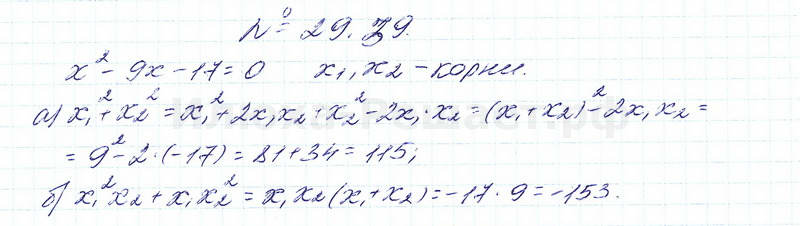 № 29.39.
x² - 9x - 17 = 0 x₁, x₂ - корни.
а) x₁² + x₂² = x₁² + 2x₁x₂ + x₂² - 2x₁·x₂ = (x₁+x₂)² - 2x₁x₂ =
= 9² - 2·(-17) = 81 + 34 = 115;
б) x₁²x₂ + x₁x₂² = x₁x₂(x₁+x₂) = -17·9 = -153.